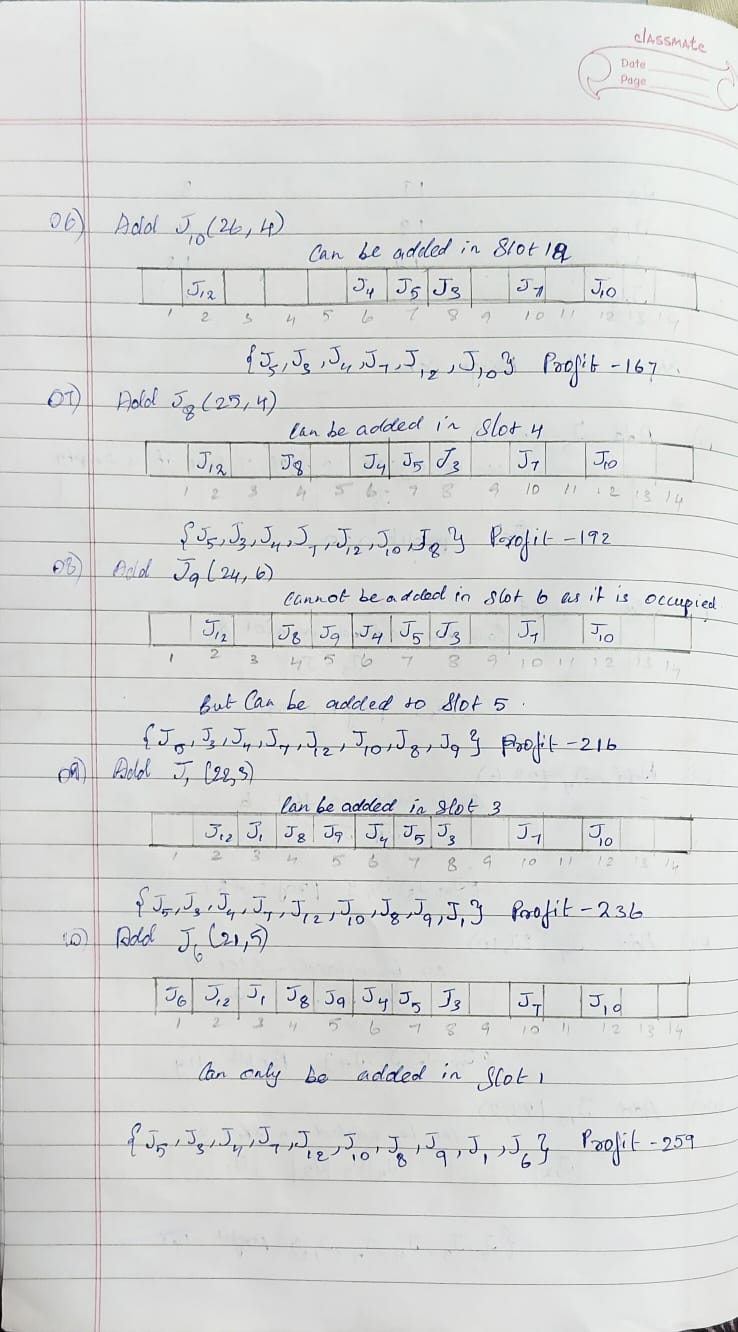 classmate
Date
Page
06) Add J10 (26, 4)
Can be added in Slot 12
J12 J4 J5 J3 J7 J10
1 2 3 4 5 6 7 8 9 10 11 12 13 14
{J5, J3, J4, J7, J12, J10} Profit - 167
07) Add J8 (25, 4)
Can be added in Slot 4
J12 J8 J4 J5 J3 J7 J10
1 2 3 4 5 6 7 8 9 10 11 12 13 14
{J5, J3, J4, J7, J12, J10, J8} Profit - 192
08) Add J9 (24, 6)
Cannot be added in slot 6 as it is occupied
J12 J8 J9 J4 J5 J3 J7 J10
1 2 3 4 5 6 7 8 9 10 11 12 13 14
But Can be added to Slot 5.
{J5, J3, J4, J7, J12, J10, J8, J9} Profit - 216
09) Add J1 (22, 3)
Can be added in Slot 3
J12 J1 J8 J9 J4 J5 J3 J7 J10
1 2 3 4 5 6 7 8 9 10 11 12 13 14
{J5, J3, J4, J7, J12, J10, J8, J9, J1} Profit - 236
10) Add J6 (21, 5)
J6 J12 J1 J8 J9 J4 J5 J3 J7 J10
1 2 3 4 5 6 7 8 9 10 11 12 13 14
Can only be added in Slot 1
{J5, J3, J4, J7, J12, J10, J8, J9, J1, J6} Profit - 259